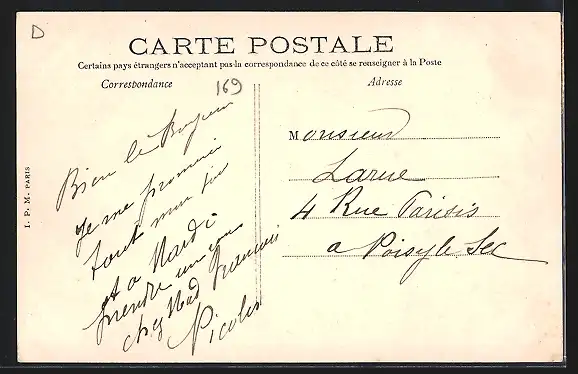 D
CARTE POSTALE
Certains pays étrangers n'acceptant pas la correspondance de ce côté se renseigner à la Poste
Correspondance
Adresse
169
Bien le Bonjour
Je me promène
tout mon
et a Mardi
prendre un
chez Mad
Nicolas
Monsieur
Larue
4 Rue Parisis
a Noisy le Sec
I. P. M. PARIS